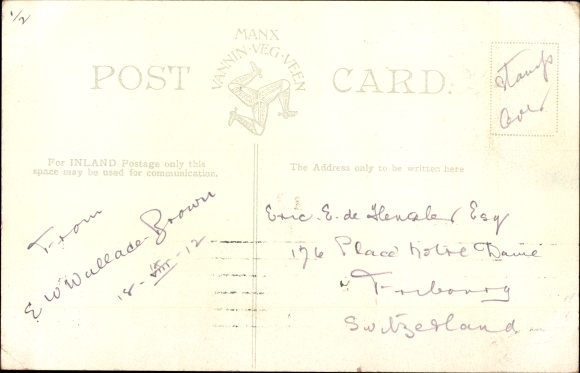 1/2
MANX
VANNIN·VEG·VEEN
POST CARD.
Stamps
Over
For INLAND Postage only this
space may be used for communication.
The Address only to be written here
From
E W Wallace Brown
18 - VIII - 12
Eric. E. de Esq
176 Place Notre Dame
Fribourg
Switzerland